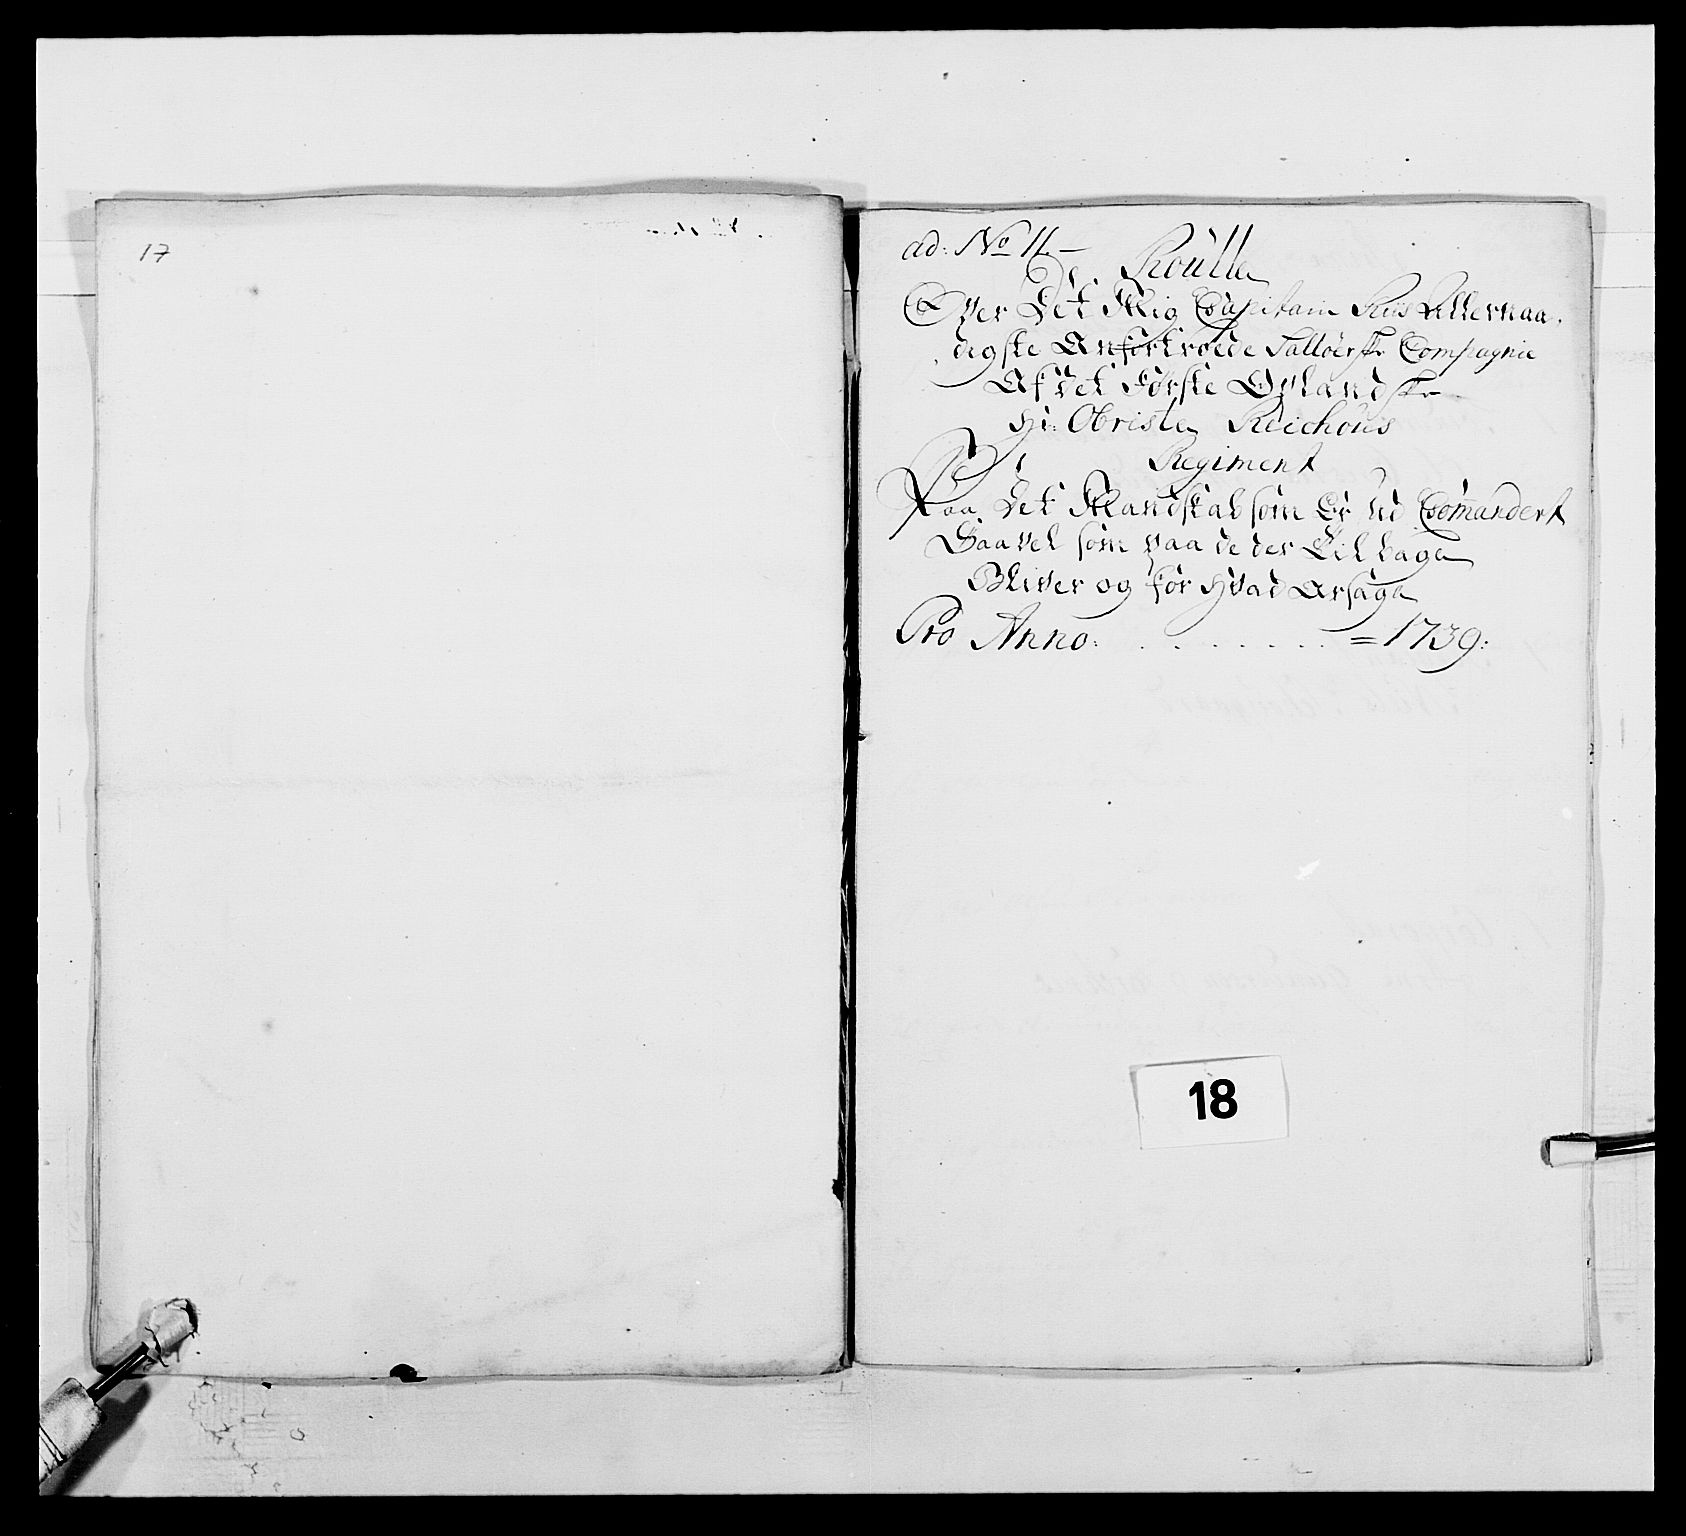 17
ad: No 11.
Roulle
Over Det Mig Capitain Ruus Allernaa-
digste Anfortroede Saltøerske Compagnie
Af det Første Oplandske
Hr: Obriste Reichous
Regiment
Paa Det Mandskab som Er Ud Comandert
Saavel som paa de der Til bage
Bliver og for Hvad Arsage
Pro Anno: . . . . . . . = 1739:
18